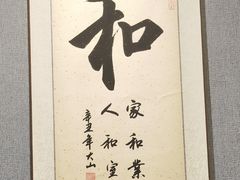 和
家和業
人和室
辛丑年大山